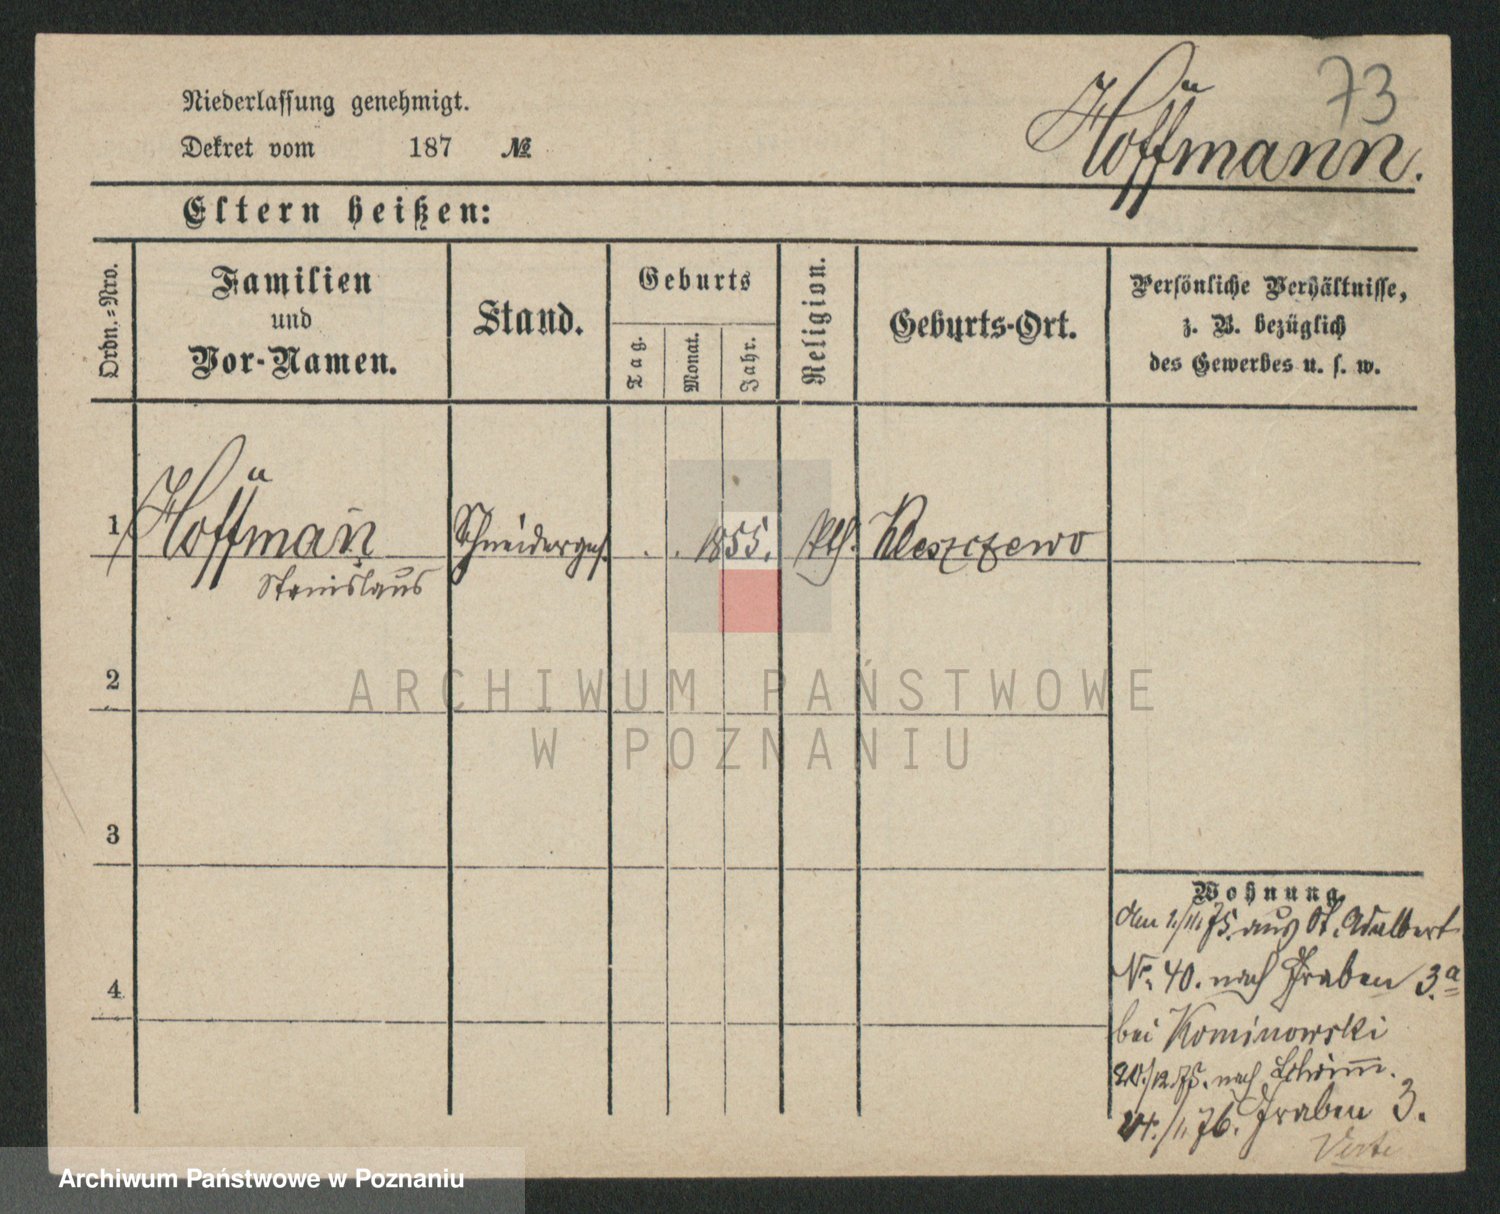 73
Niederlassung genehmigt.
Dekret vom 187 №
Hoffmann.
Eltern heißen:
Ordn.=Nro.
Familien
und
Vor-Namen.
Stand.
Geburts
Tag.
Monat.
Jahr.
Religion.
Geburts-Ort.
Persönliche Verhältnisse,
z. B. bezüglich
des Gewerbes u. s. w.
1 Hoffmañ Schneiderges. . . 1855. kth. Kleszczewo
Stanislaus
2
3
4
Wohnung
den 1/11 75. aus St. Adalbert
No. 40. nach Graben 3.a
bei Kominowski
20./12.75. nach Schrimm.
24./1. 76. Graben 3.
Verte
ARCHIWUM PAŃSTWOWE
W POZNANIU
Archiwum Państwowe w Poznaniu